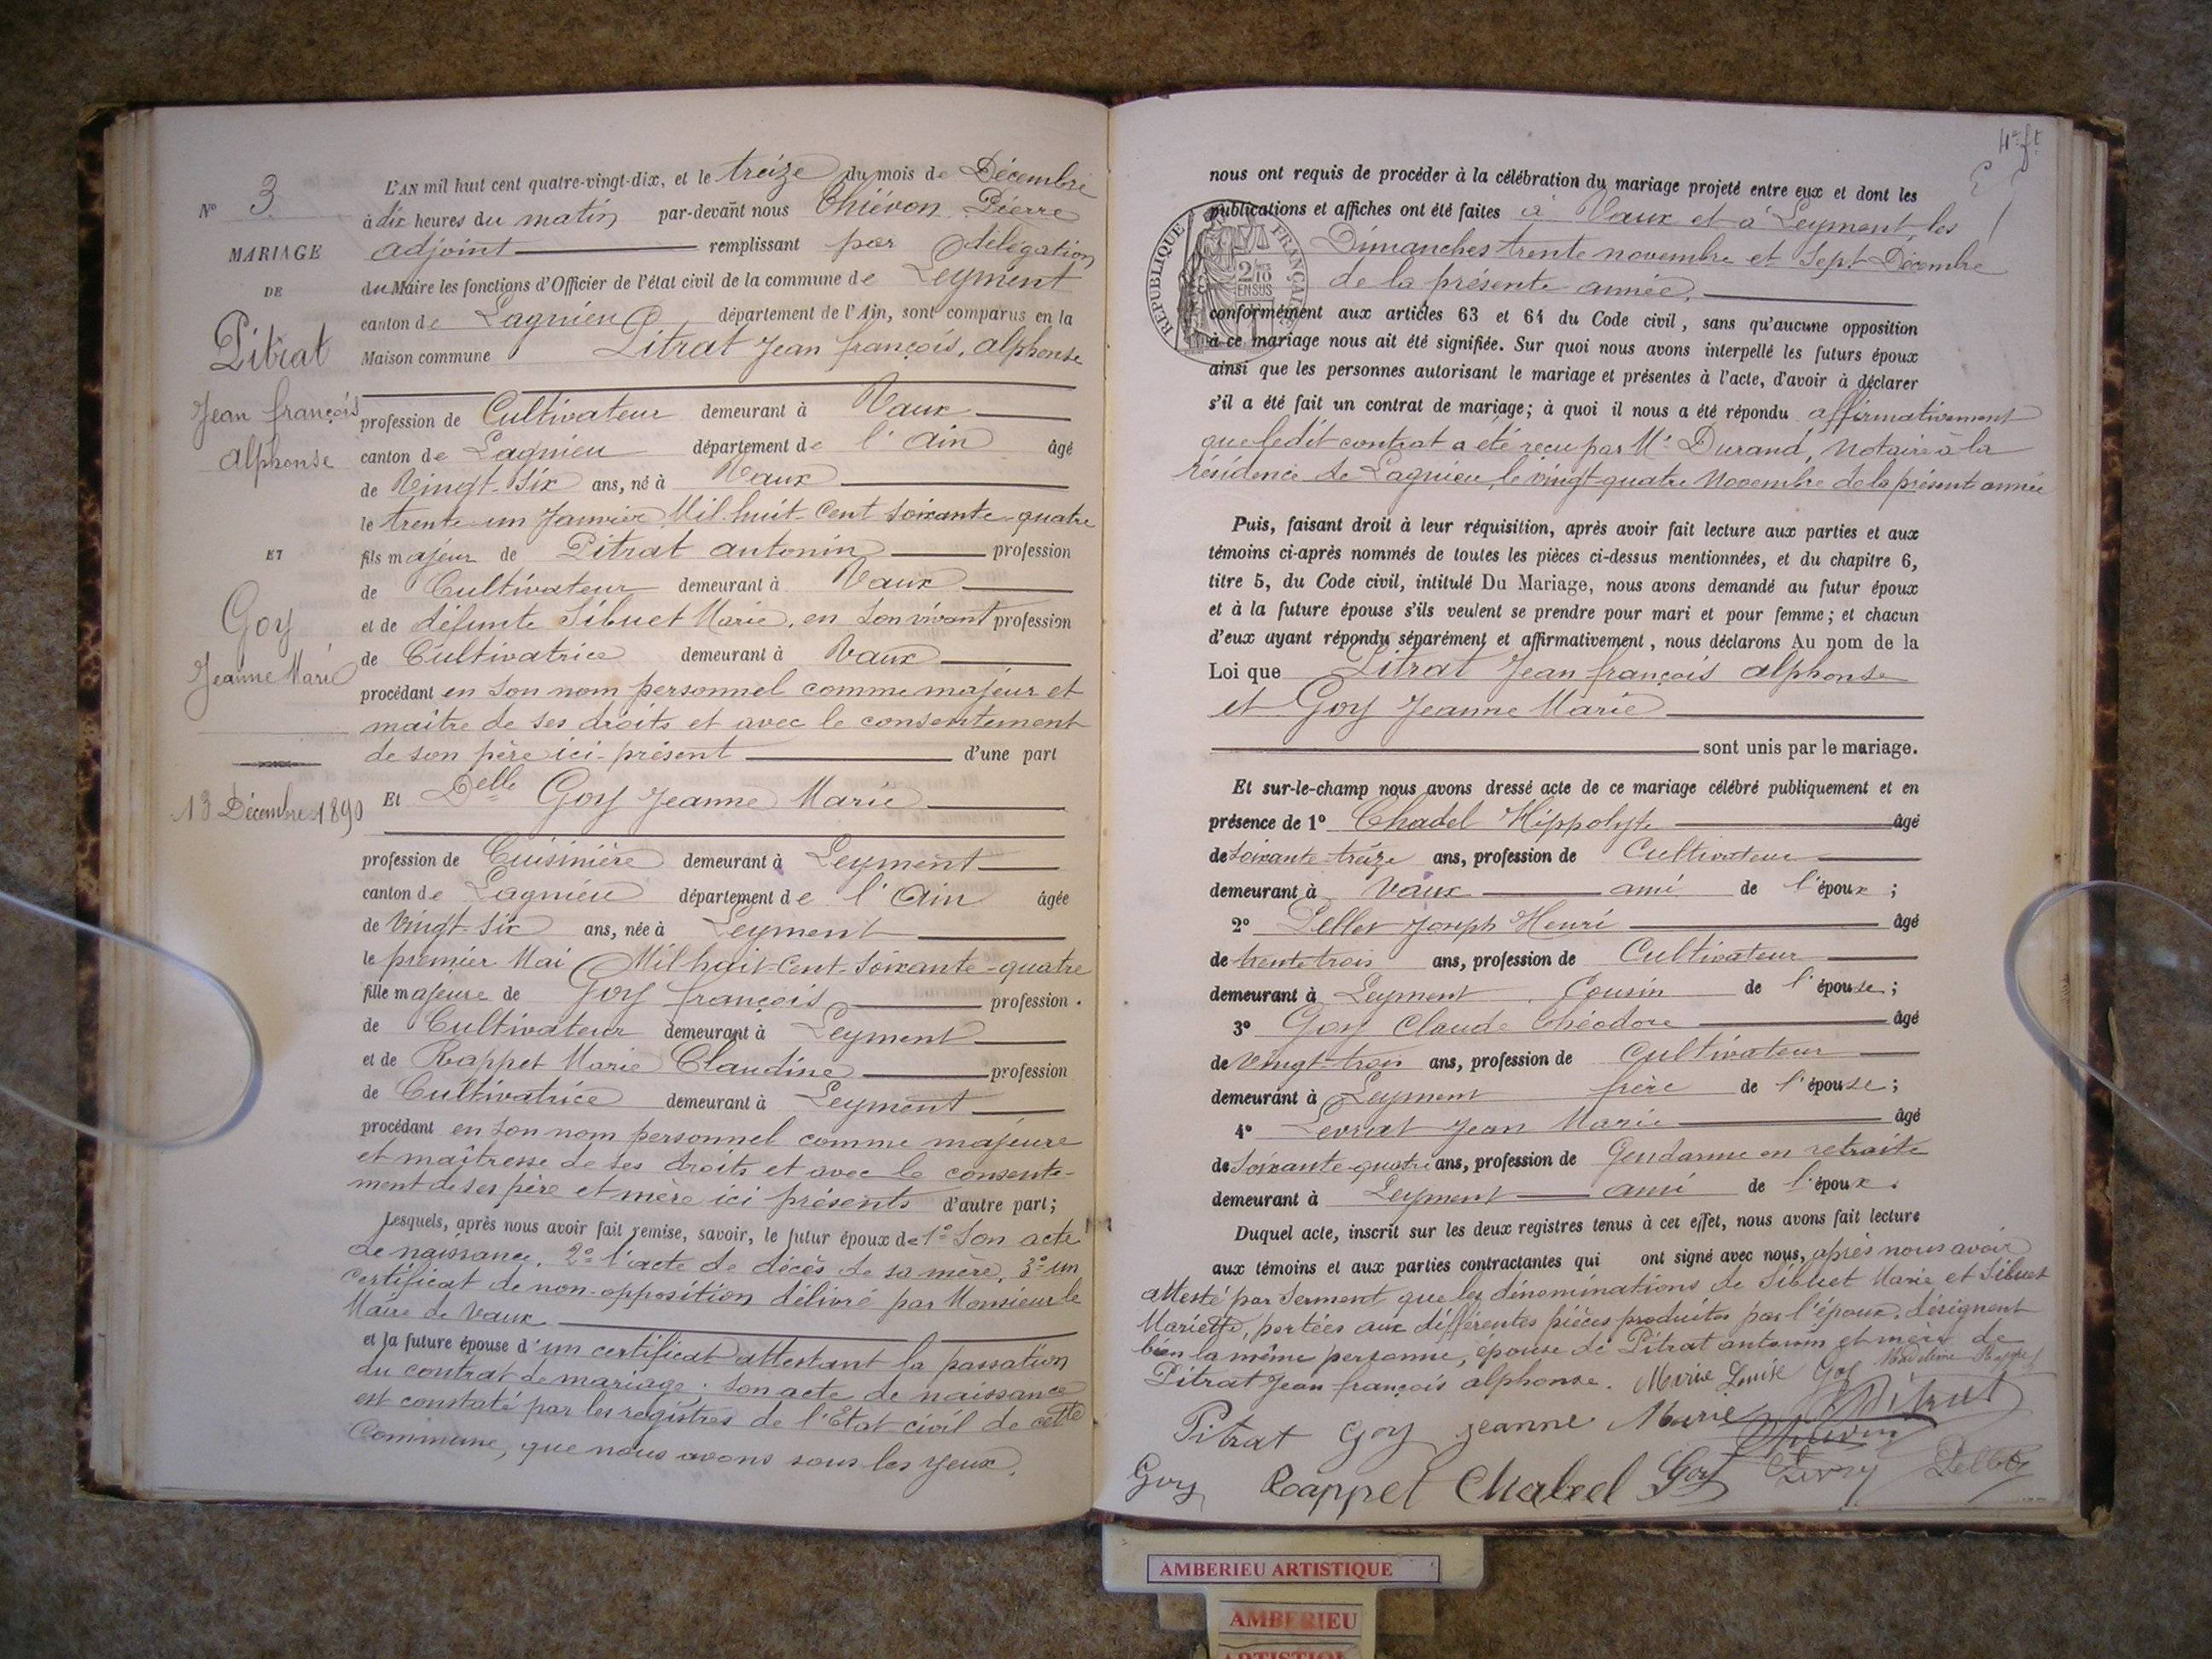 N° 3
MARIAGE
DE
Pitrat
Jean françois
alphonse
ET
Goy
Jeanne Marie
13 Décembre 1890
L'AN mil huit cent quatre-vingt-dix, et le treize du mois de Décembre
à dix heures du matin par-devant nous Thiévon Pierre
adjoint remplissant par délégation
du Maire les fonctions d'Officier de l'état civil de la commune de Leyment
canton de Lagnieu département de l'Ain, sont comparus en la
Maison commune Pitrat Jean françois, alphonse
profession de Cultivateur demeurant à Vaux
canton de Lagnieu département de l'Ain âgé
de Vingt-Six ans, né à Vaux
le trente un Janvier Mil-huit-Cent Soixante-quatre
fils majeur de Pitrat antonin profession
de Cultivateur demeurant à Vaux
et de défunte Sibuet Marie, en Son vivant profession
de Cultivatrice demeurant à Vaux
procédant en Son nom personnel comme majeur et
maître de ses droits et avec le consentement
de son père ici-présent d'une part
Et Delle Goy Jeanne Marie
profession de Cuisinière demeurant à Leyment
canton de Lagnieu département de l'Ain âgée
de Vingt-Six ans, née à Leyment
le premier Mai Mil huit-Cent-Soixante-quatre
fille majeure de Goy françois profession
de Cultivateur demeurant à Leyment
et de Rappet Marie Claudine profession
de Cultivatrice demeurant à Leyment
procédant en Son nom personnel comme majeure
et maîtresse de ses droits et avec le consente-
ment de ses père et mère ici présents d'autre part;
Lesquels, après nous avoir fait remise, savoir, le futur époux de 1° Son acte
de naissance, 2° l'acte de décès de sa mère, 3° un
certificat de non-opposition délivré par Monsieur le
Maire de Vaux.
et la future épouse d'un certificat attestant la passation
du contrat de mariage; Son acte de naissance
est constaté par les registres de l'Etat-civil de cette
Commune, que nous avons sous les yeux.
nous ont requis de procéder à la célébration du mariage projeté entre eux et dont les
publications et affiches ont été faites à Vaux et à Leyment, les
Dimanches trente novembre et Sept Décembre
de la présente année.
RÉPUBLIQUE FRANÇAISE
2/10
EN SUS
conformément aux articles 63 et 64 du Code civil, sans qu'aucune opposition
à ce mariage nous ait été signifiée. Sur quoi nous avons interpellé les futurs époux
ainsi que les personnes autorisant le mariage et présentes à l'acte, d'avoir à déclarer
s'il a été fait un contrat de mariage; à quoi il nous a été répondu affirmativement
que ledit contrat a été reçu par Me Durand, Notaire à la
résidence de Lagnieu, le vingt-quatre Novembre de la présente année
Puis, faisant droit à leur réquisition, après avoir fait lecture aux parties et aux
témoins ci-après nommés de toutes les pièces ci-dessus mentionnées, et du chapitre 6,
titre 5, du Code civil, intitulé Du Mariage, nous avons demandé au futur époux
et à la future épouse s'ils veulent se prendre pour mari et pour femme; et chacun
d'eux ayant répondu séparément et affirmativement, nous déclarons Au nom de la
Loi que Pitrat Jean françois alphonse
et Goy Jeanne Marie
sont unis par le mariage.
Et sur-le-champ nous avons dressé acte de ce mariage célébré publiquement et en
présence de 1° Chadel Hippolyte âgé
de Soixante-treize ans, profession de Cultivateur
demeurant à Vaux ami de l'époux;
2° Pellet Joseph Henri âgé
de trente trois ans, profession de Cultivateur
demeurant à Leyment, Cousin de l'épouse;
3° Goy Claude Théodore âgé
de Vingt-trois ans, profession de Cultivateur
demeurant à Leyment frère de l'épouse;
4° Levrat Jean Marie âgé
de Soixante-quatre ans, profession de Gendarme en retraite
demeurant à Leyment ami de l'époux.
Duquel acte, inscrit sur les deux registres tenus à cet effet, nous avons fait lecture
aux témoins et aux parties contractantes qui ont signé avec nous, après nous avoir
attesté par Serment que les dénominations de Sibuet Marie et Sibuet
Mariette, portées aux différentes pièces produites par l'époux, désignent
bien la même personne, épouse de Pitrat antonin et mère de
Pitrat Jean françois alphonse. Marie Louise Goy
Pitrat Goy Jeanne Marie Pitrat
Goy Rappet Chabel Goy
AMBERIEU ARTISTIQUE
AMBERIEU
ARTISTIQUE